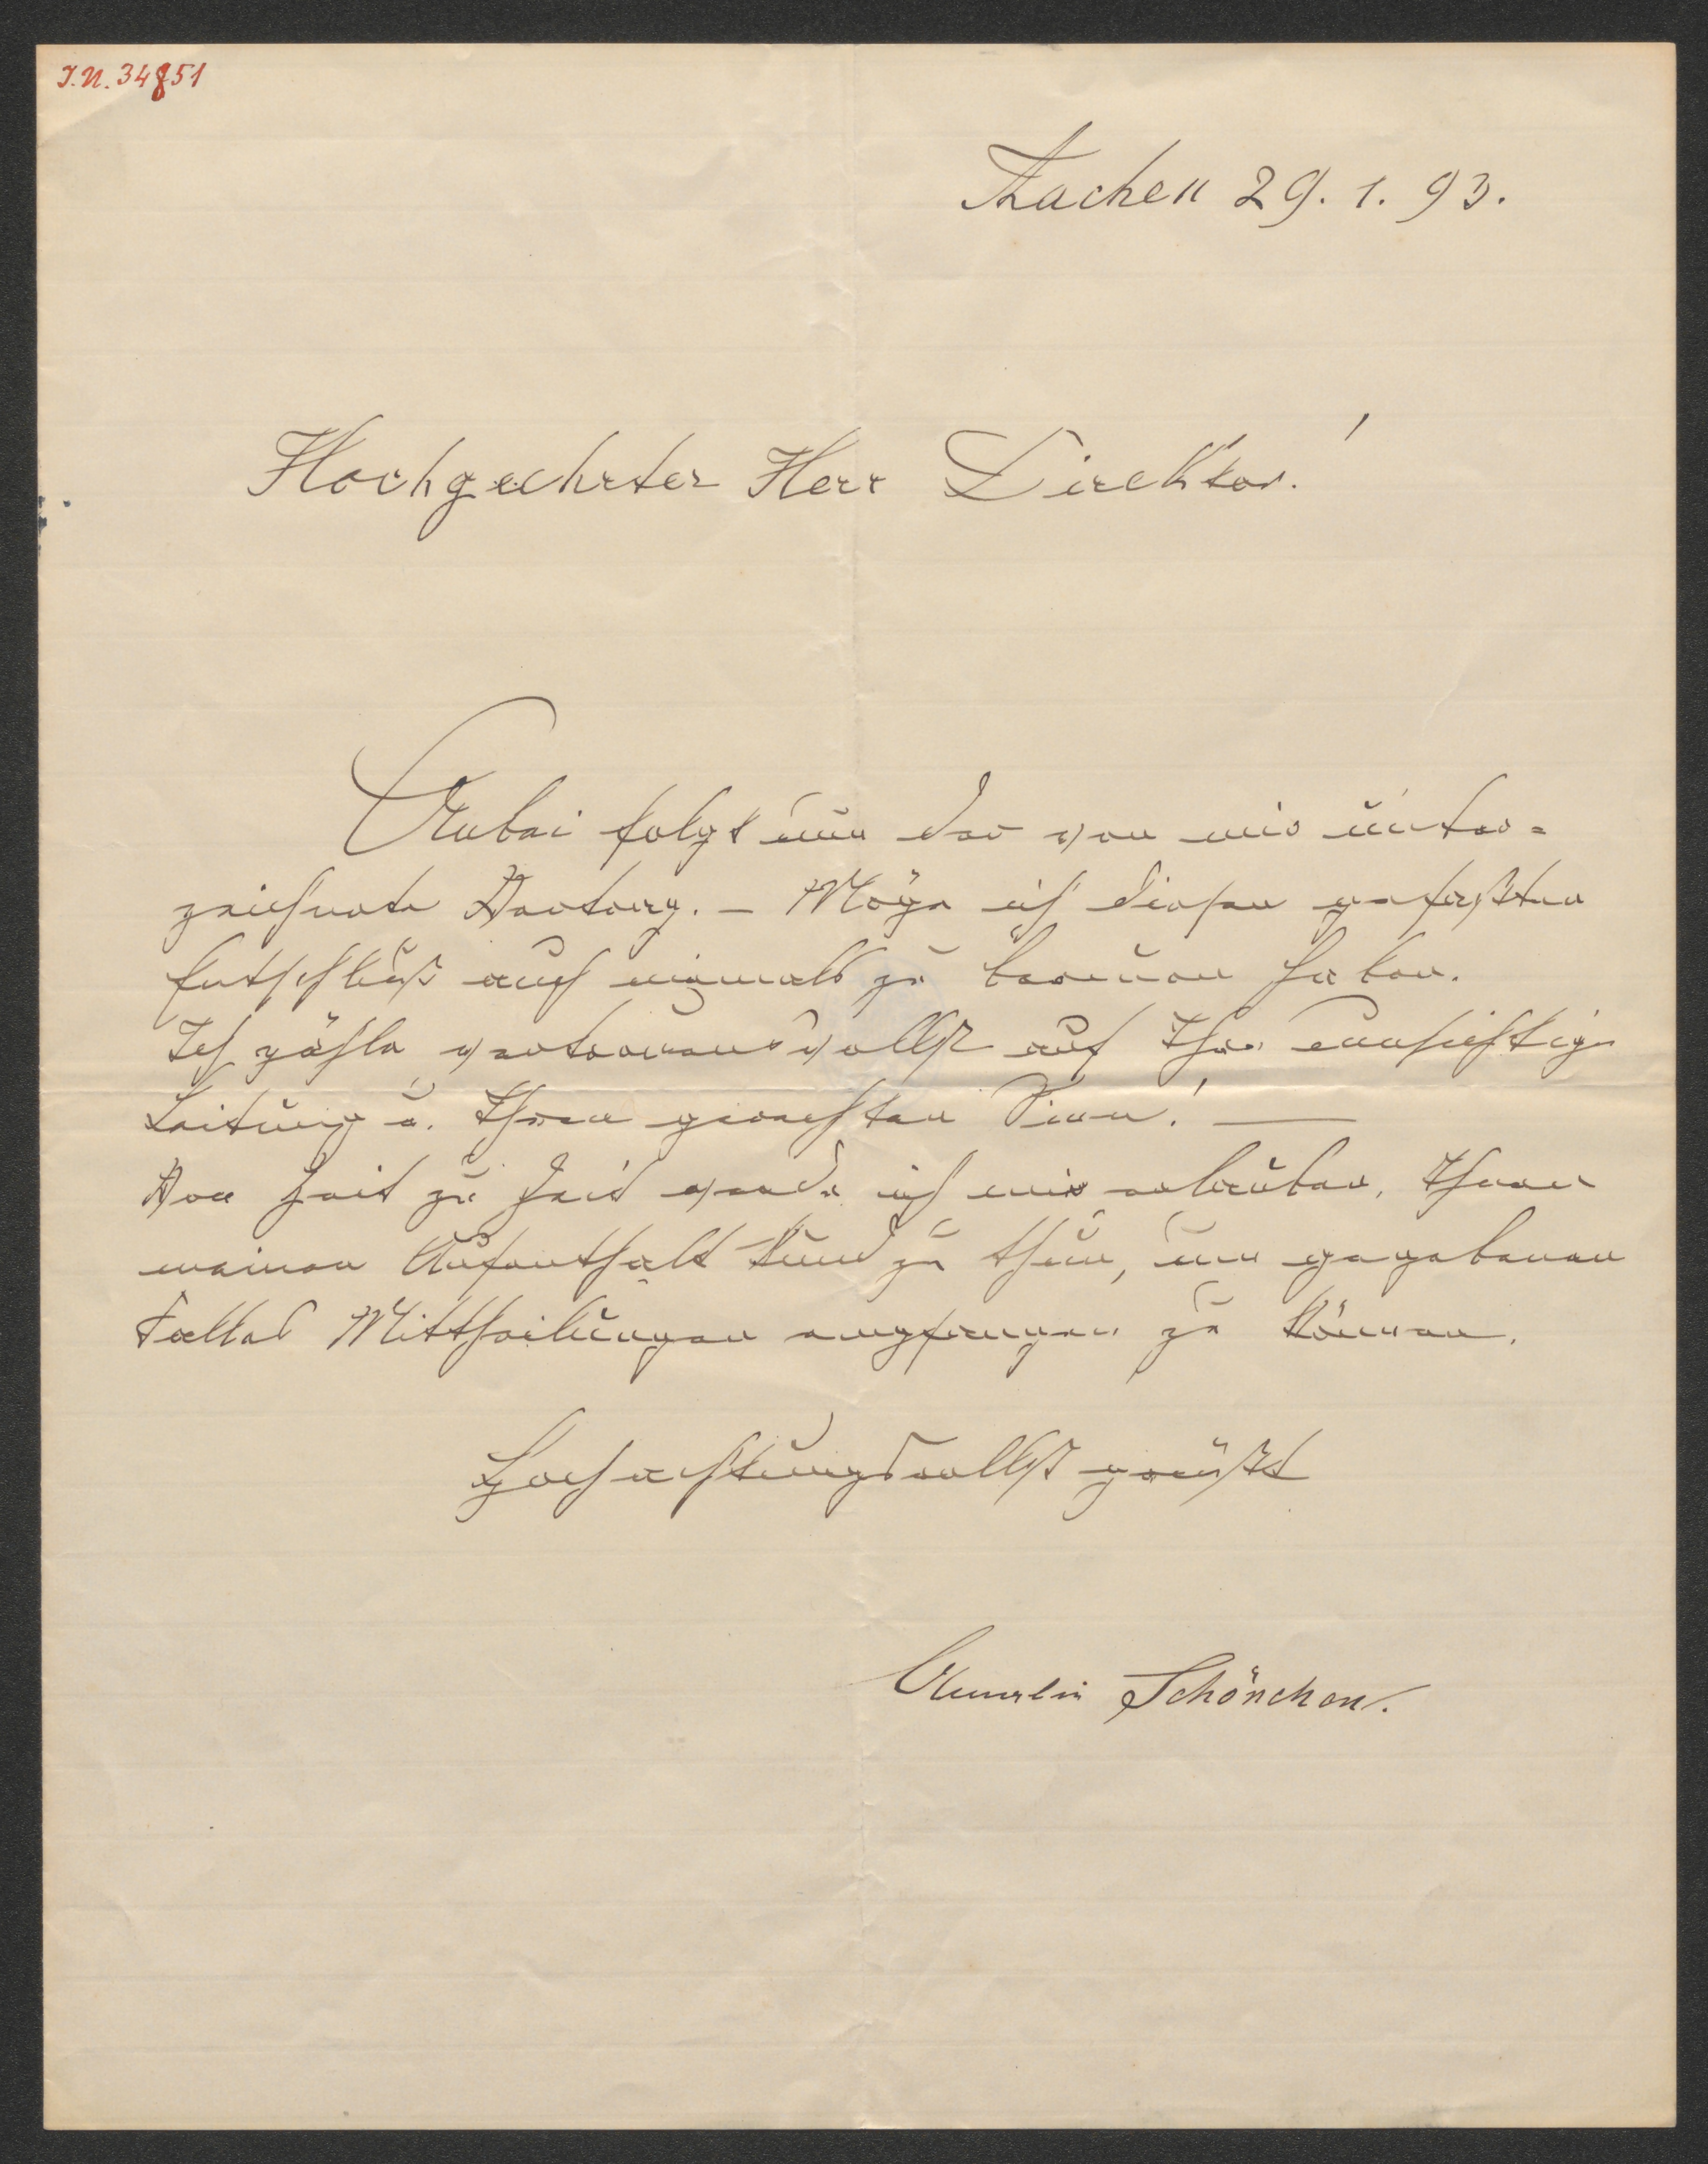 I.N. 34851
Aachen 29. 1. 93.
Hochgeehrter Herr Direktor!
Anbei folgt nun der von mir unter=
zeichnete Vertrag. – Möge ich diesen gefaßten
Entschluß auch niemals zu bereuen haben.
Ich zähle vertrauensvollst auf Ihre einsichtige
Leitung u. Ihren gerechten Sinn! —
Von Zeit zu Zeit werde ich mir erlauben, Ihnen
meinen Aufenthalt kund zu thun, um gegebenen
Falles Mittheilungen empfangen zu können.
Hochachtungsvollst grüßt
Amalie Schönchen.